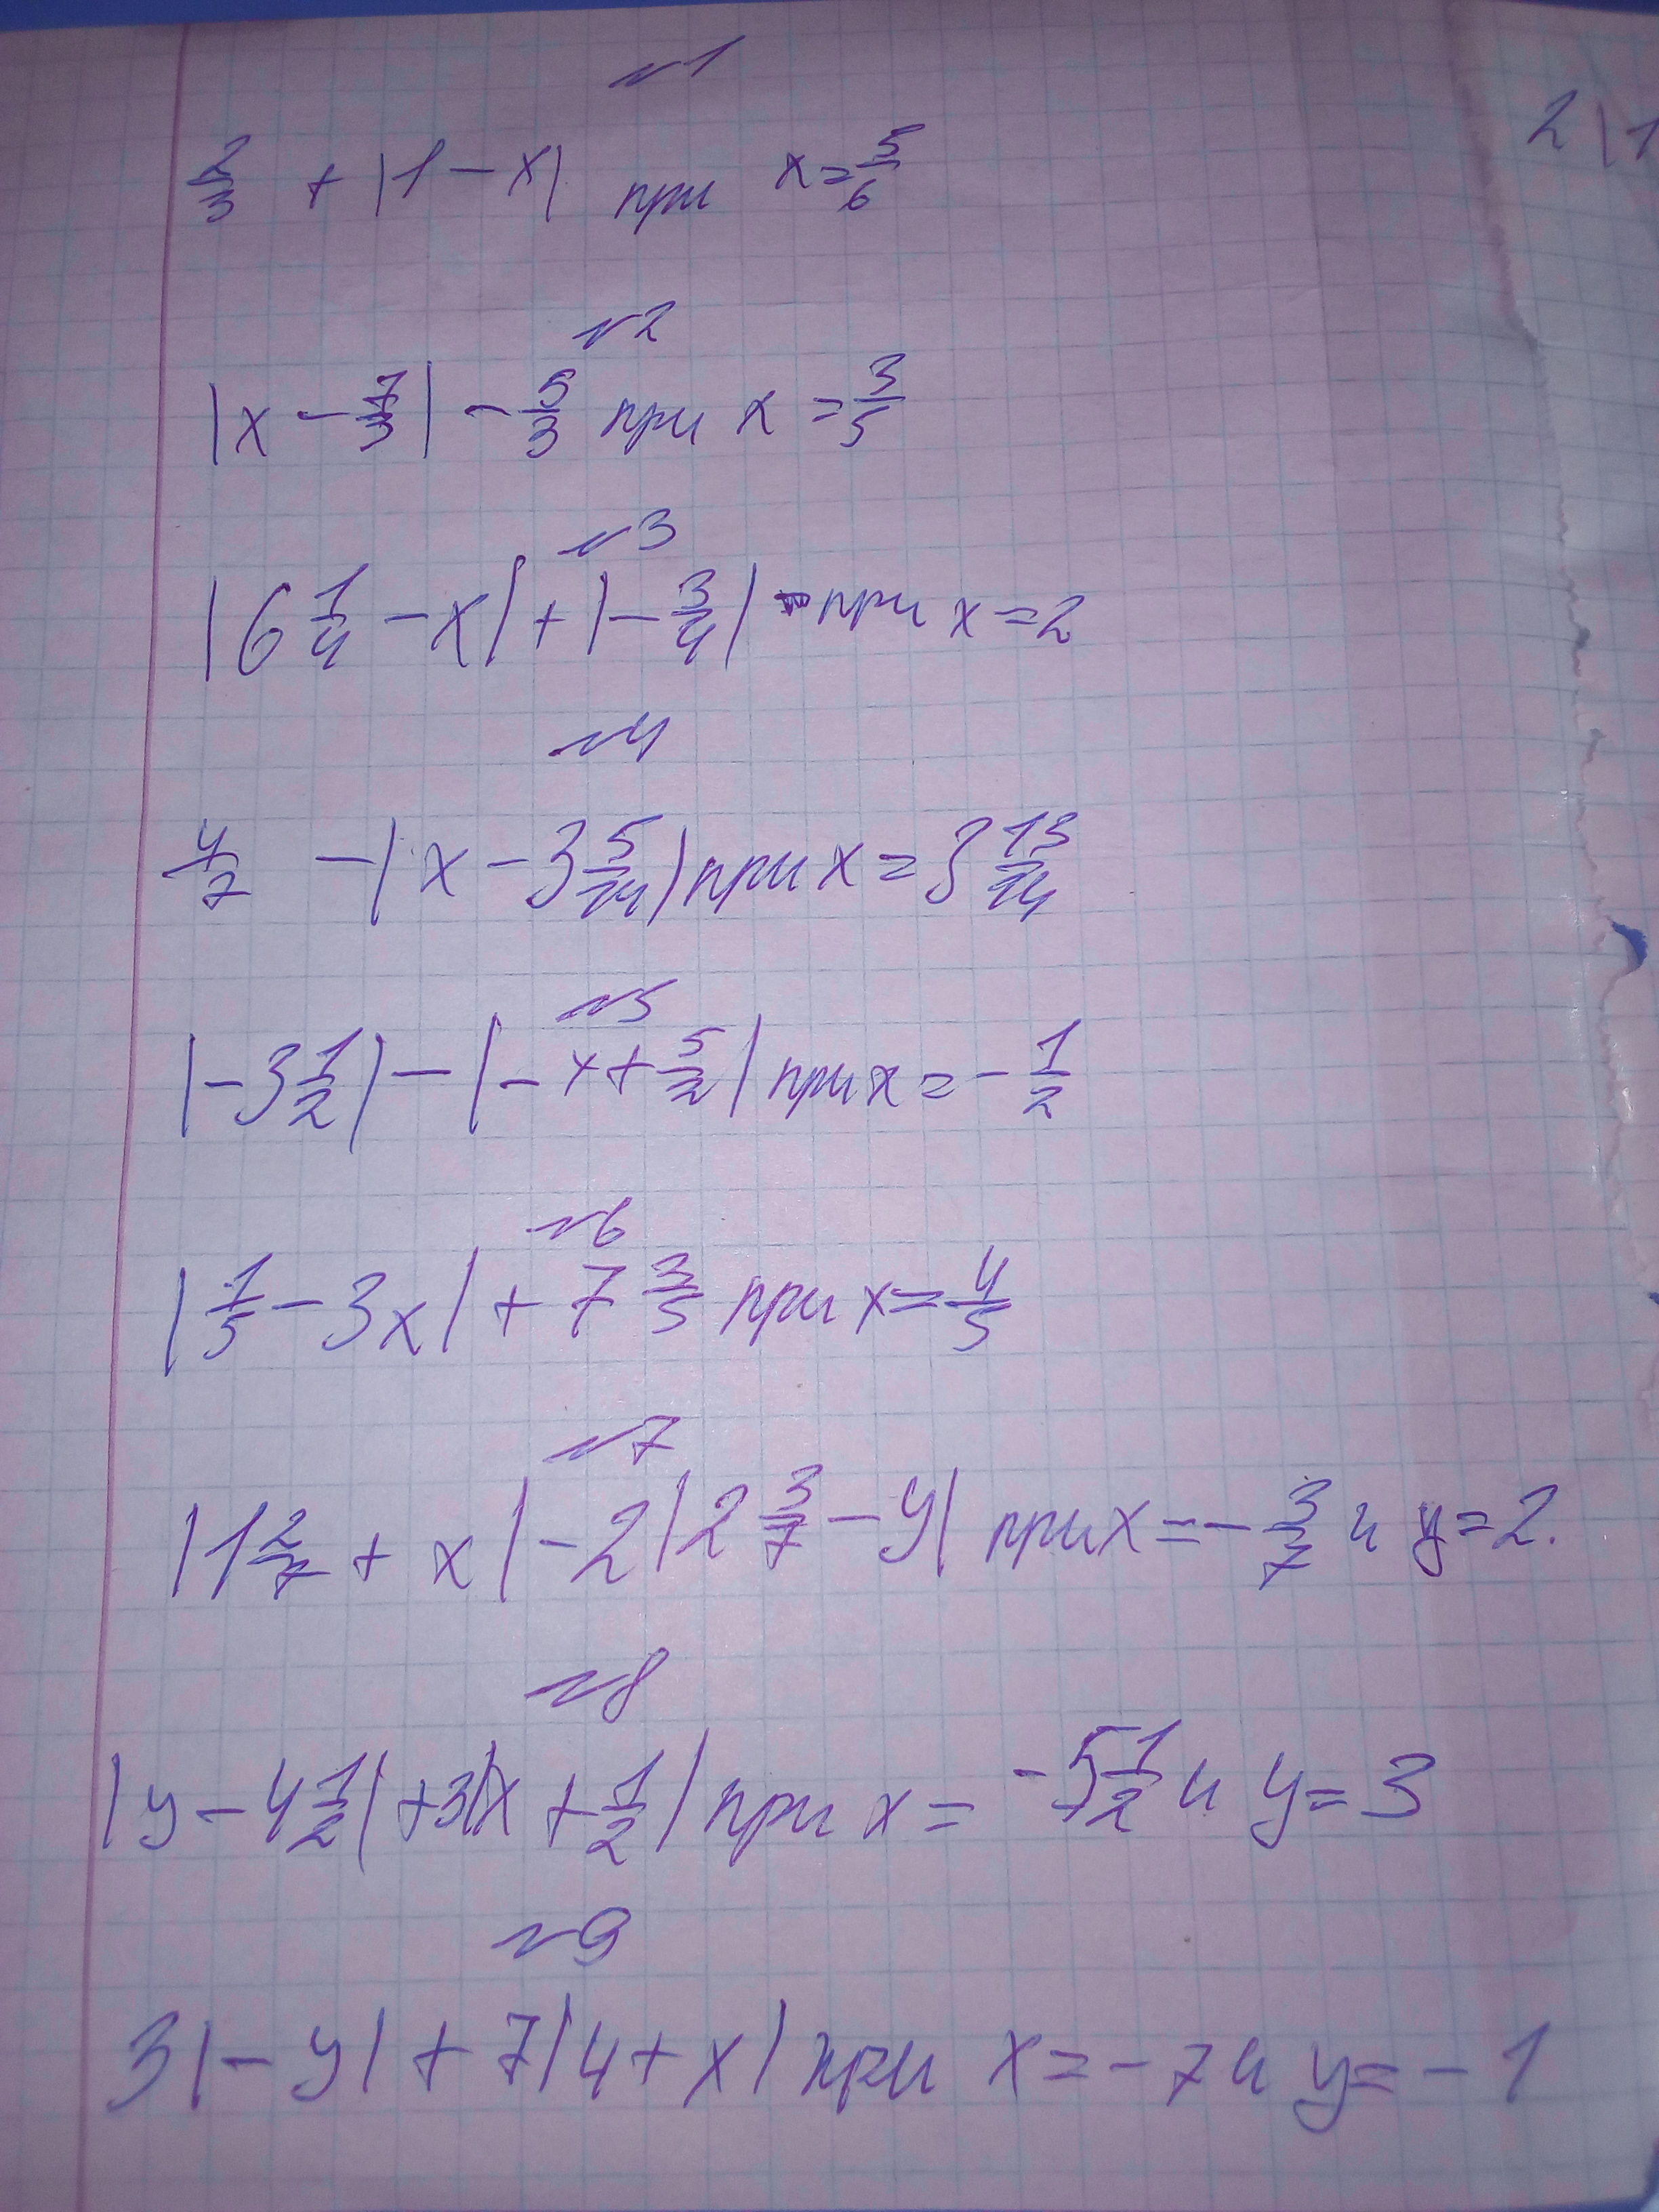 №1
2/3 + |1 - x| при x = 5/6
2 | 1
№2
|x - 7/3| - 5/3 при x = 3/5
№3
|6 1/4 - x| + |- 3/4| при x = 2
№4
4/7 - |x - 3 5/14| при x = 3 13/14
№5
|-3 1/2| - |- x + 5/2| при x = - 1/2
№6
|1/5 - 3x| + 7 3/5 при x = 4/5
№7
|1 2/7 + x| - 2|2 3/7 - y| при x = - 3/7 и y = 2.
№8
|y - 4 1/2| + 3|x + 1/2| при x = -5 1/2 и y = 3
№9
3|- y| + 7|4 + x| при x = - 7 и y = - 1